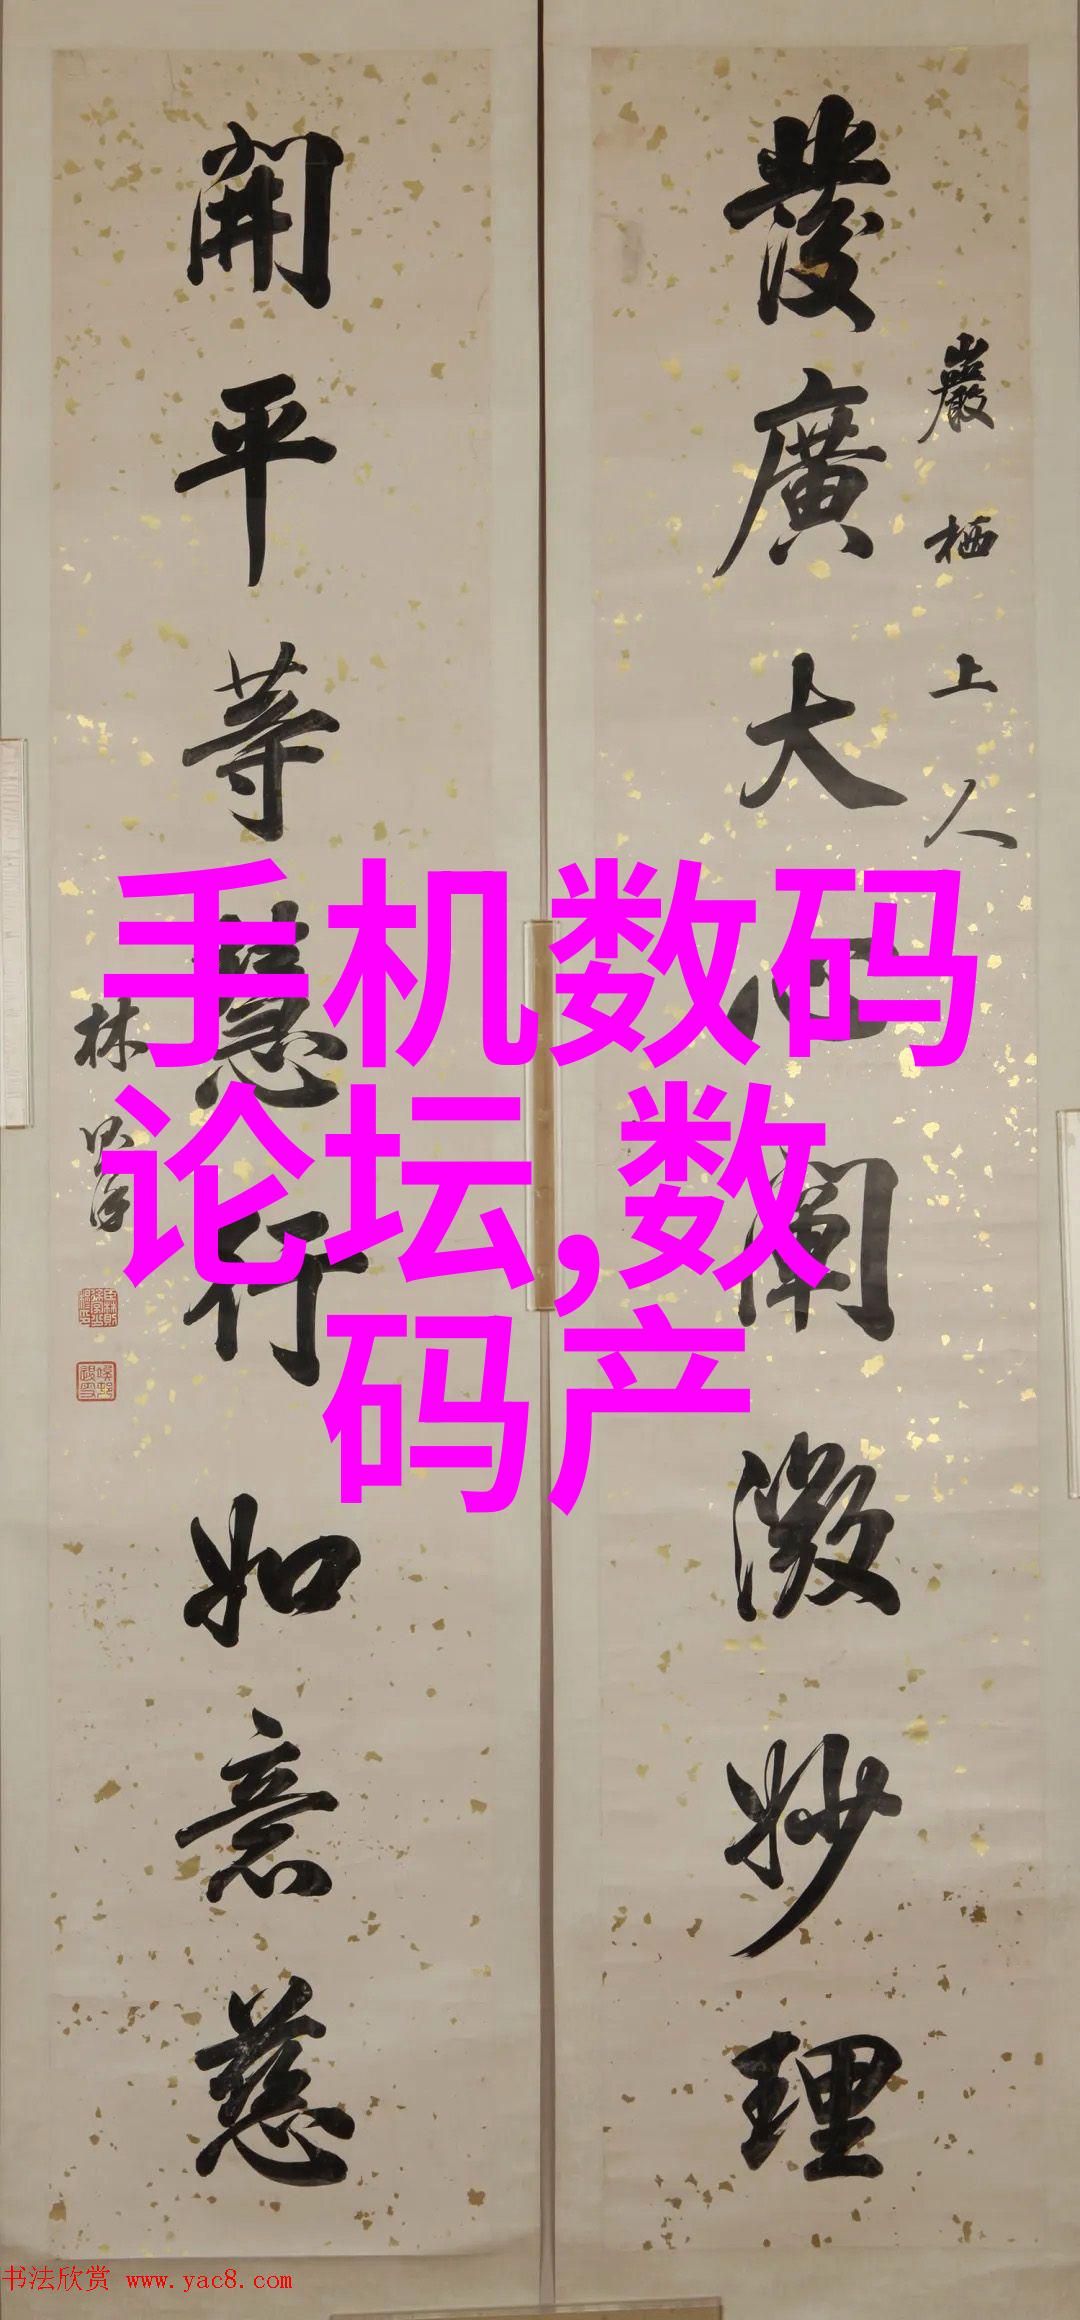 發廣大心闡微妙理
巖栖上人
開平等慧行如意慈
林則徐
手机数码
论坛,数
码产
书法欣赏 www.yac8.com